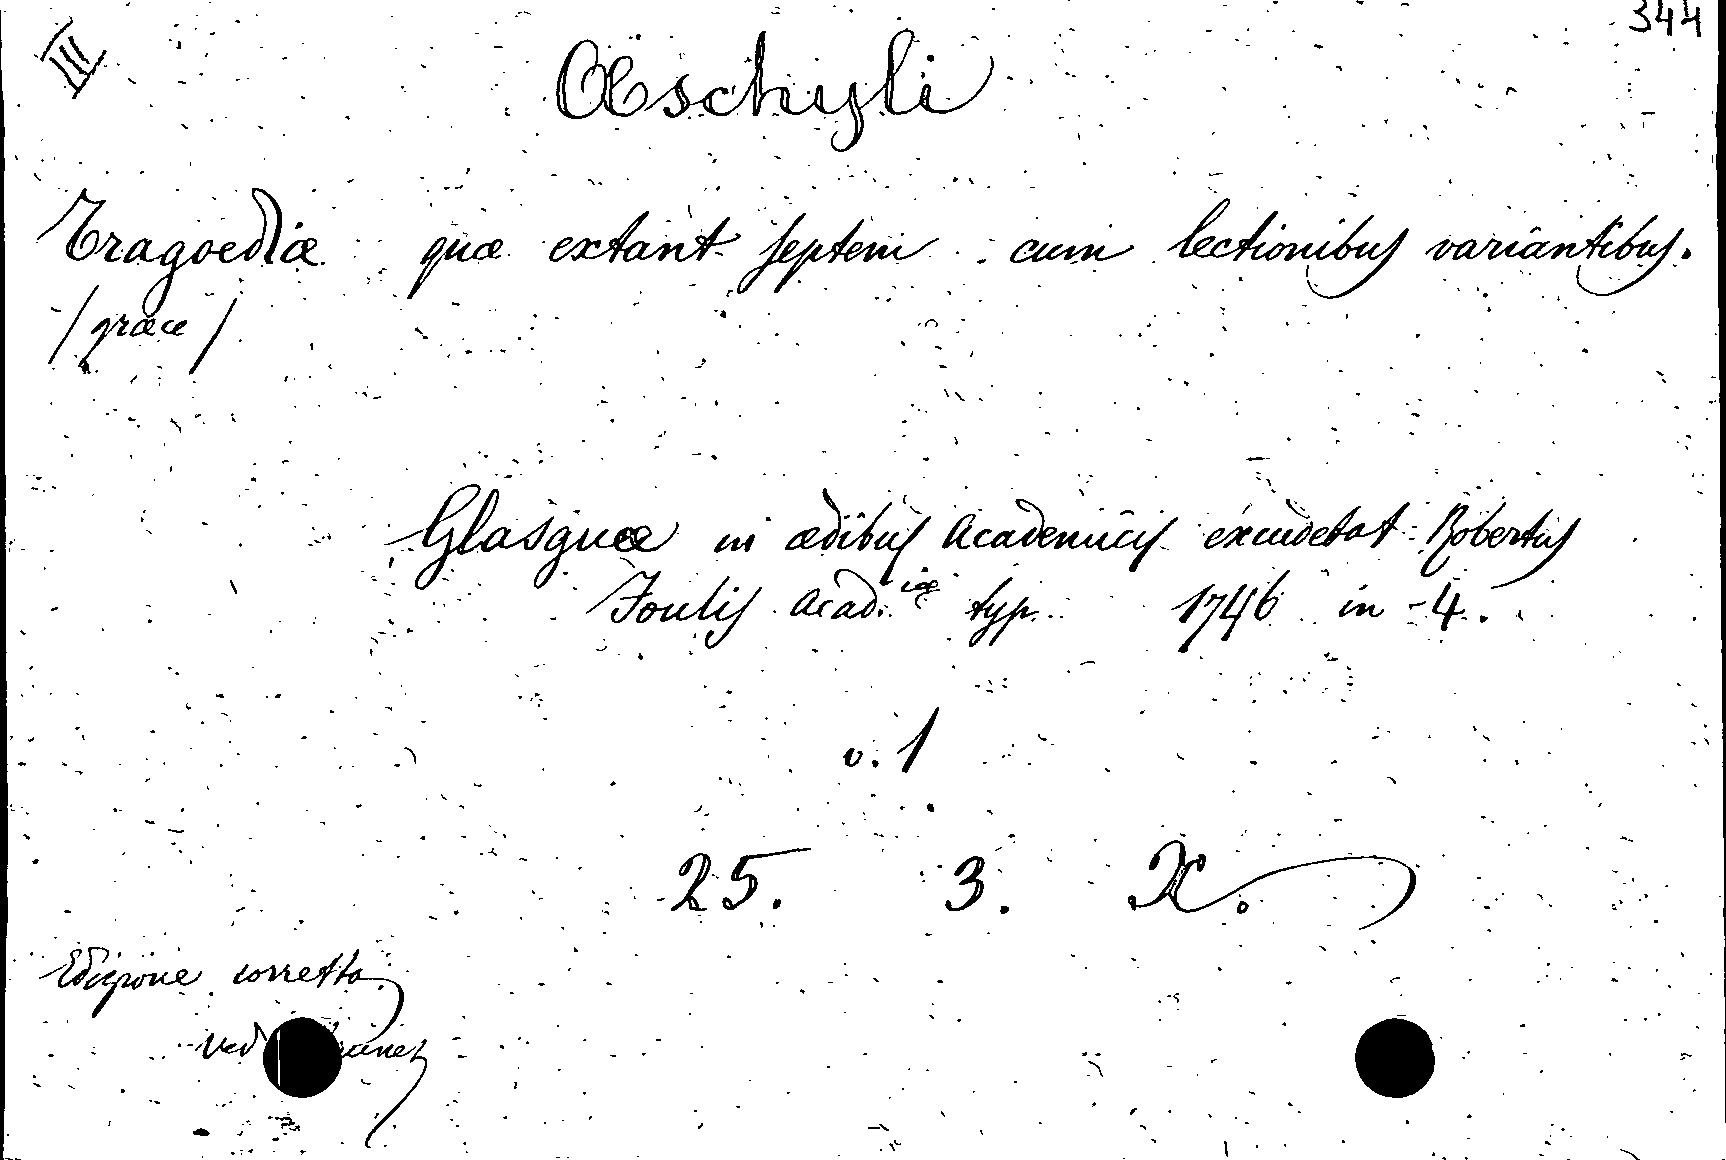 III
344
Æschyli
Tragoediæ quæ extant septem cum lectionibus variantibus.
/ græce /
Glasguæ in ædibus Academicis excudebat Robertus
Foulis Acad.iæ typ. 1746 in-4.
v. 1
25. 3. X.
Edizione corretta
Ved